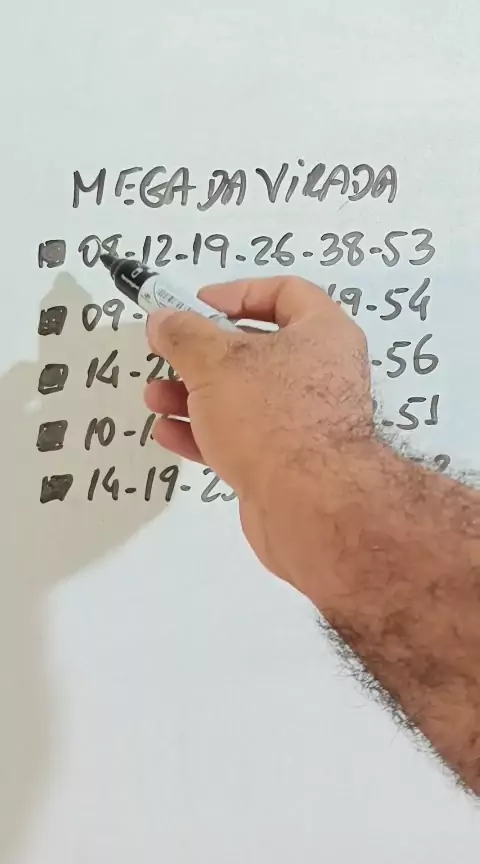 MEGA DA VIRADA
08-12-19-26-38-53
09- 19-54
14-2 -56
10-1 -51
14-19-2